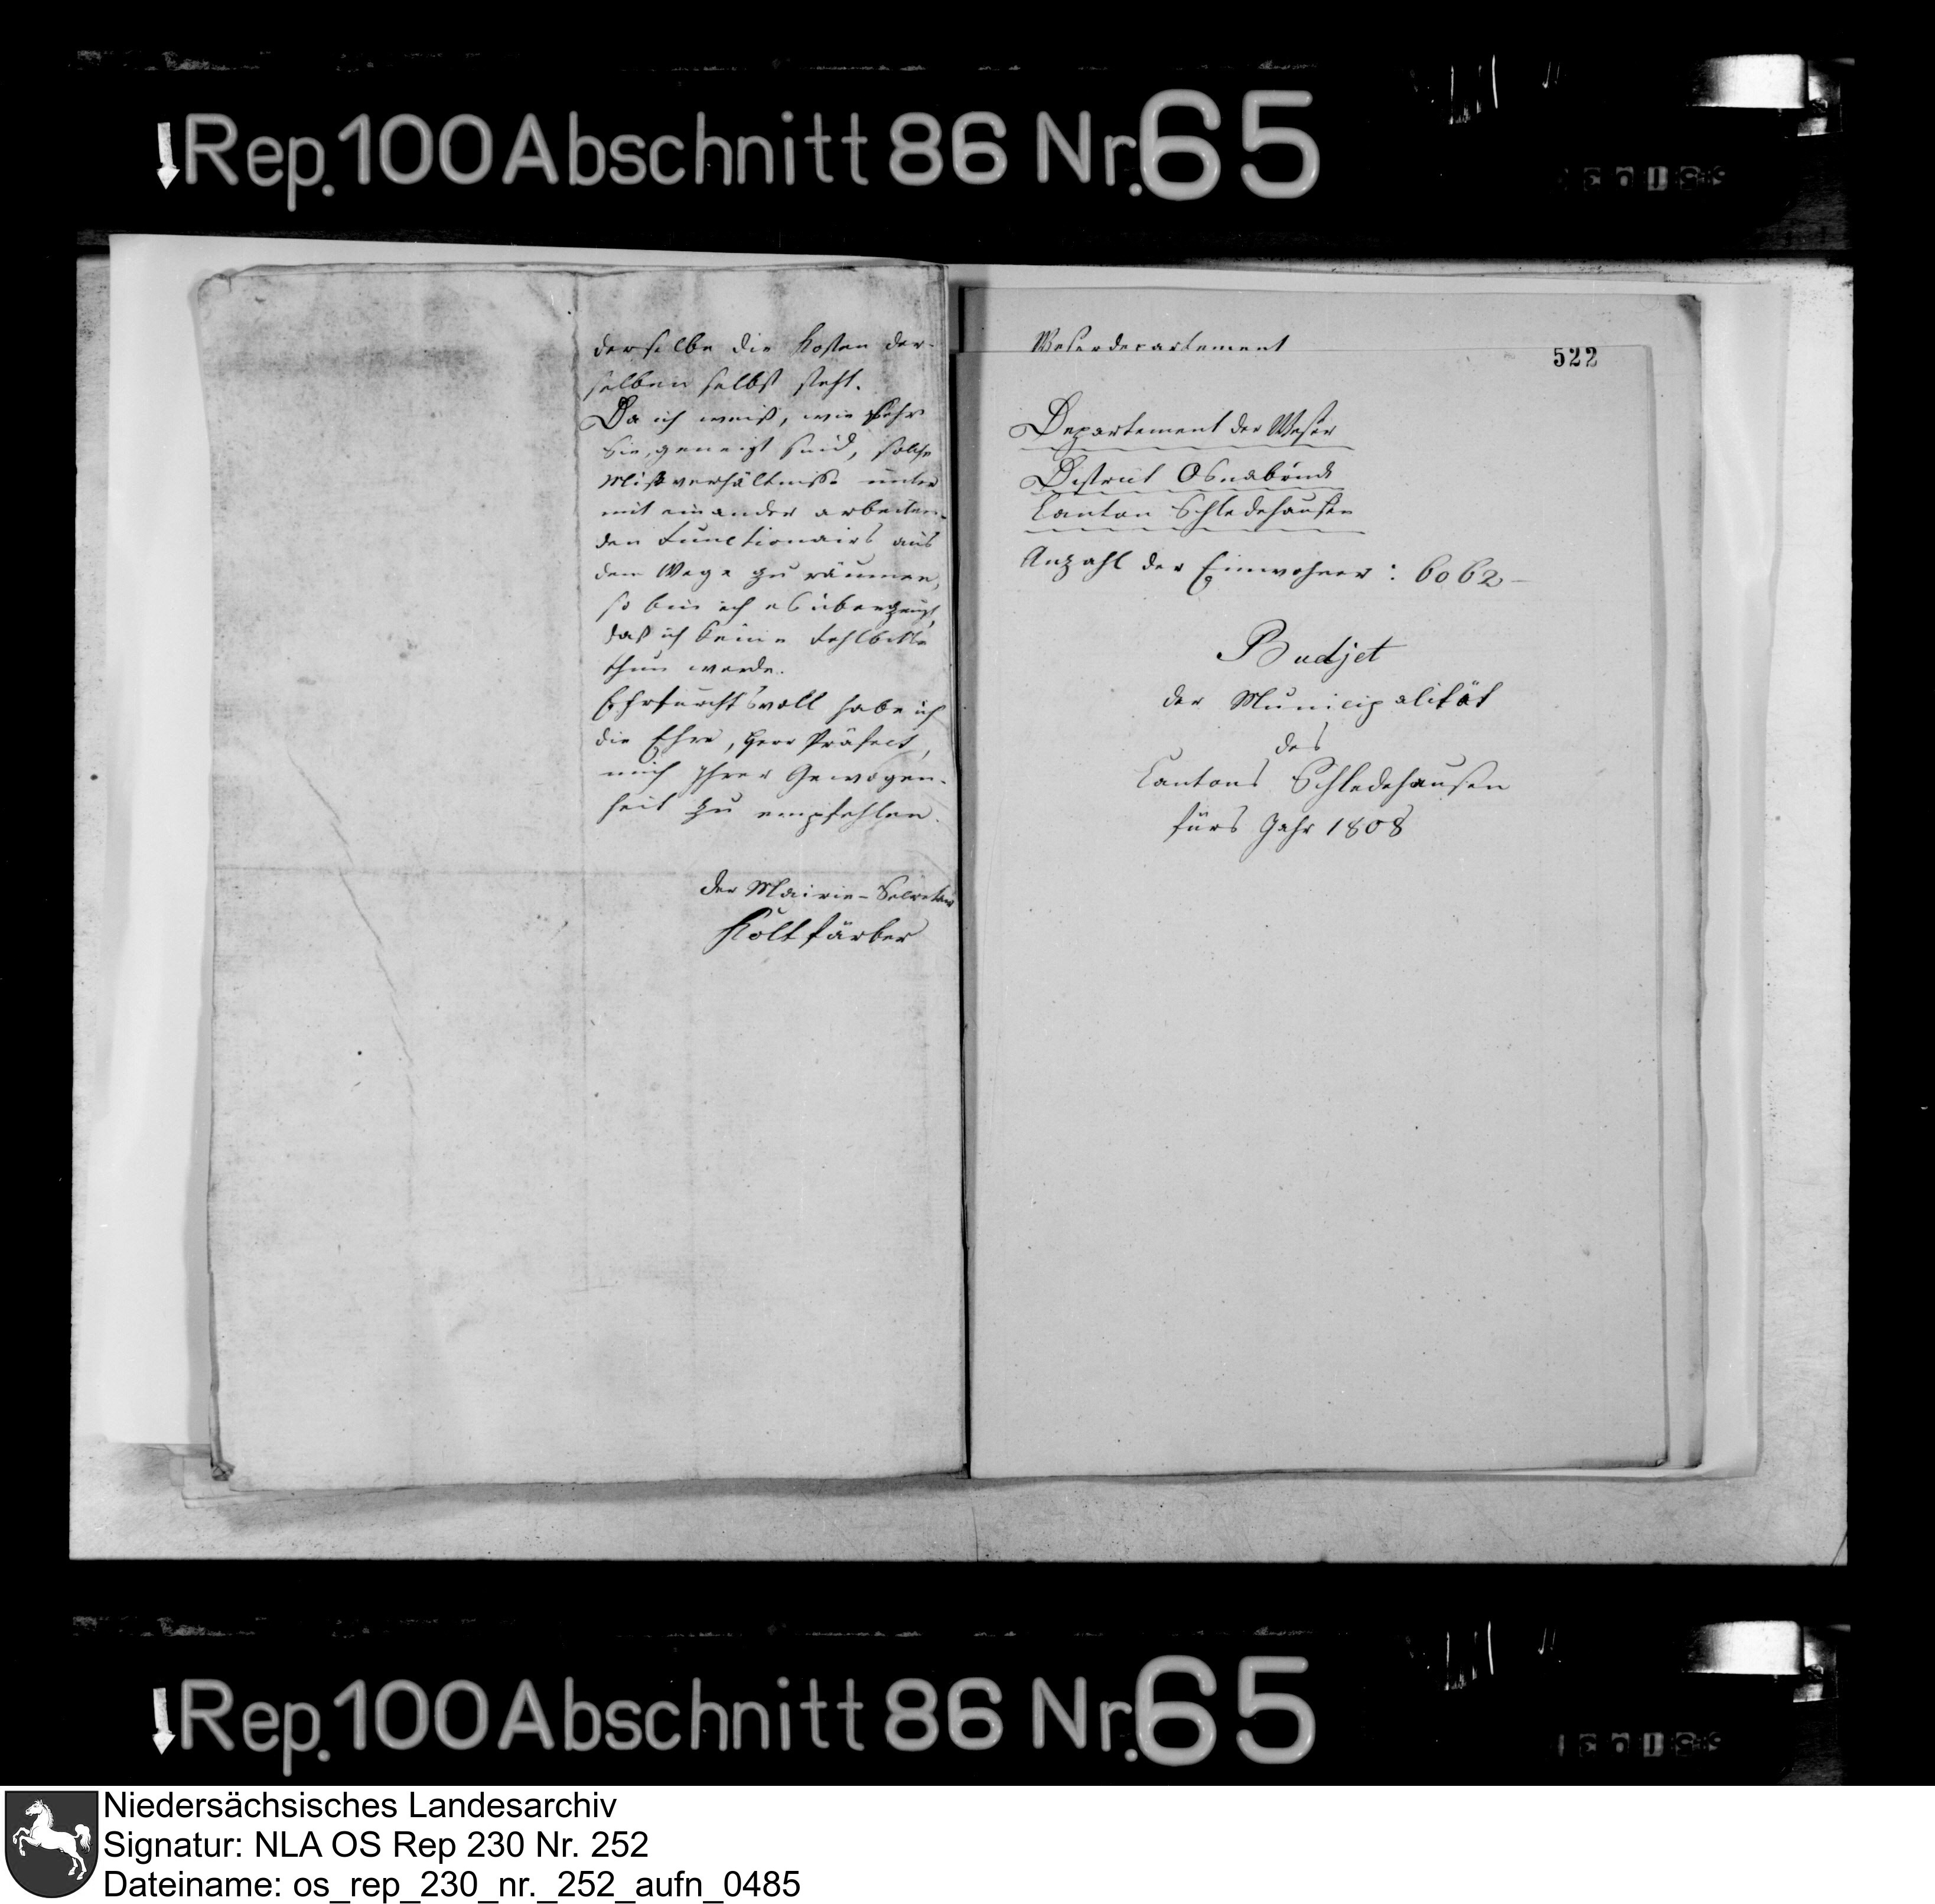 Rep. 100 Abschnitt 86 Nr. 65
derselbe die Kosten der-
selben selbst steht.
Da ich weiß, wie sehr
Sie geneigt sind, solche
Mißverhältnisse unter
mit einander arbeiten-
den Functionairs aus
dem Wege zu räumen,
so bin ich es überzeugt,
daß ich keine Fehlbitte
thun werde.
Ehrfurchtsvoll habe ich
die Ehre, Herr Präfect,
mich Ihrer Gewogen-
heit zu empfehlen.
Der Mairie-Secretair
Kollfärber
Weserdepartement
522
Departement der Weser
District Osnabrück
Canton Schledehausen
Anzahl der Einwohner: 6062
Budjet
der Municipalität
des
Cantons Schledehausen
fürs Jahr 1808
Rep. 100 Abschnitt 86 Nr. 65
Niedersächsisches Landesarchiv
Signatur: NLA OS Rep 230 Nr. 252
Dateiname: os_rep_230_nr._252_aufn_0485